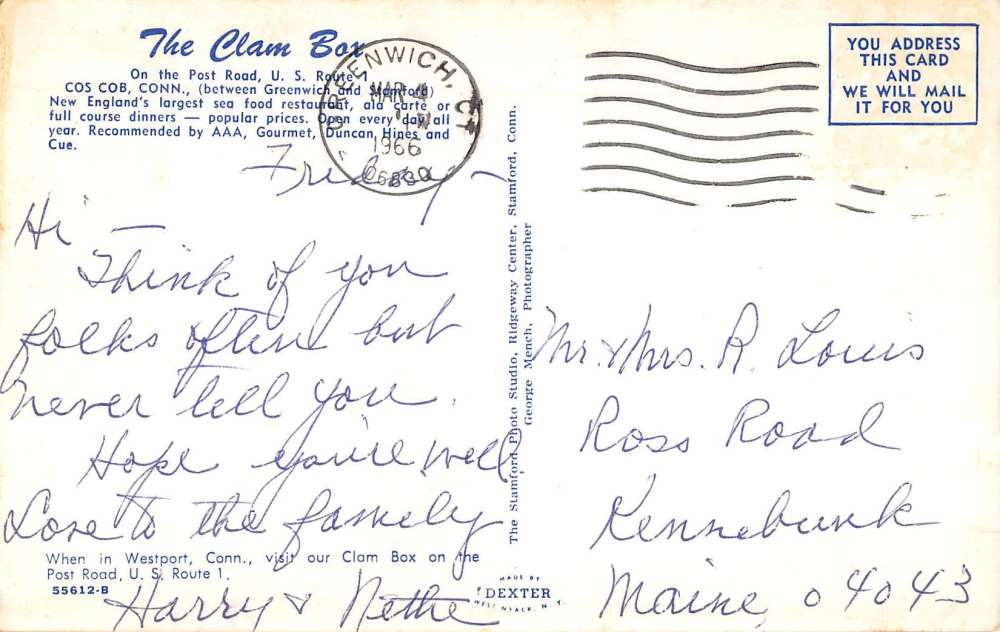 The Clam Box
On the Post Road, U. S. Route 1
COS COB, CONN., (between Greenwich and Stamford)
New England's largest sea food restaurant, ala carte or
full course dinners — popular prices. Open every day all
year. Recommended by AAA, Gourmet, Duncan Hines and
Cue.
GREENWICH, CT
MAR 4
PM
1966
06830
YOU ADDRESS
THIS CARD
AND
WE WILL MAIL
IT FOR YOU
Friday —
Hi —
Think of you
folks often but
never tell you.
Hope you're well,
Love to the family
Harry & Nethe
When in Westport, Conn., visit our Clam Box on the
Post Road, U. S. Route 1.
55612-B
The Stamford Photo Studio, Ridgeway Center, Stamford, Conn.
George Mench, Photographer
MADE BY
DEXTER
WEST NYACK, N. Y.
Mr. & Mrs. R. Louis
Ross Road
Kennebunk
Maine 04043